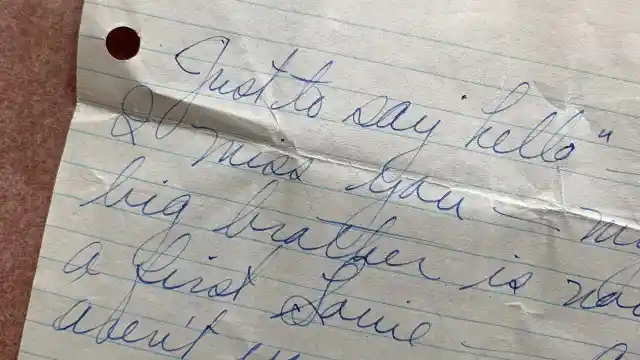 Just to say "hello" -
I miss you - my
big brother is now
a first Louie -
aven't